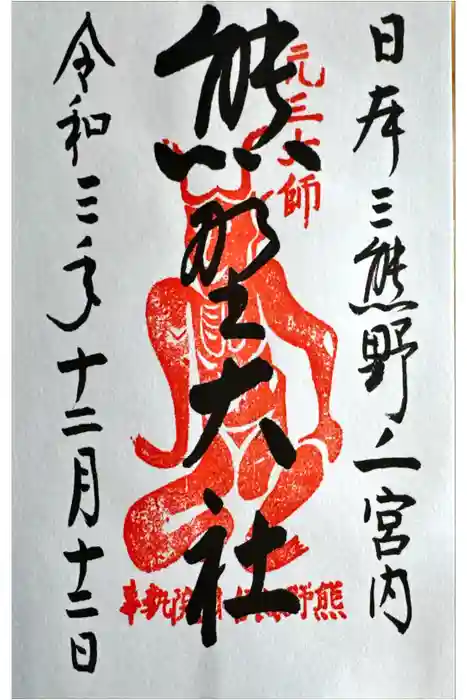 日本三熊野 宮内
元三大師
熊野大社
令和三年十二月十二日
熊野 院執事